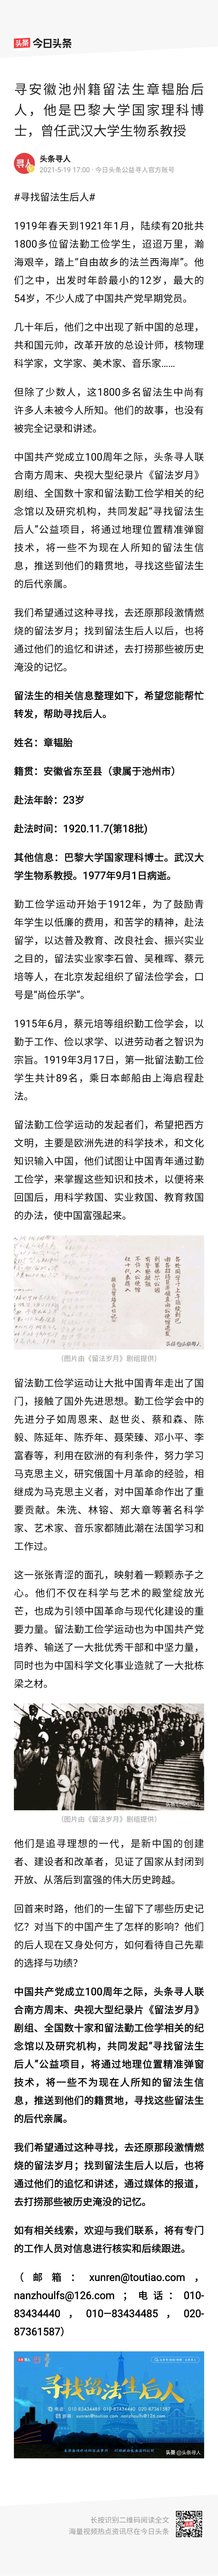 头条 今日头条
寻安徽池州籍留法生章韫胎后
人，他是巴黎大学国家理科博
士，曾任武汉大学生物系教授
寻人
头条寻人
2021-5-19 17:00 · 今日头条公益寻人官方账号
#寻找留法生后人#
1919年春天到1921年1月，陆续有20批共
1800多位留法勤工俭学生，迢迢万里，瀚
海艰辛，踏上“自由故乡的法兰西海岸”。他
们之中，出发时年龄最小的12岁，最大的
54岁，不少人成了中国共产党早期党员。
几十年后，他们之中出现了新中国的总理，
共和国元帅，改革开放的总设计师，核物理
科学家，文学家、美术家、音乐家……
但除了少数人，这1800多名留法生中尚有
许多人未被今人所知。他们的故事，也没有
被完全记录和讲述。
中国共产党成立100周年之际，头条寻人联
合南方周末、央视大型纪录片《留法岁月》
剧组、全国数十家和留法勤工俭学相关的纪
念馆以及研究机构，共同发起“寻找留法生
后人”公益项目，将通过地理位置精准弹窗
技术，将一些不为现在人所知的留法生信
息，推送到他们的籍贯地，寻找这些留法生
的后代亲属。
我们希望通过这种寻找，去还原那段激情燃
烧的留法岁月；找到留法生后人以后，也将
通过他们的追忆和讲述，去打捞那些被历史
淹没的记忆。
留法生的相关信息整理如下，希望您能帮忙
转发，帮助寻找后人。
姓名：章韫胎
籍贯：安徽省东至县（隶属于池州市）
赴法年龄：23岁
赴法时间：1920.11.7(第18批)
其他信息：巴黎大学国家理科博士。武汉大
学生物系教授。1977年9月1日病逝。
勤工俭学运动开始于1912年，为了鼓励青
年学生以低廉的费用，和苦学的精神，赴法
留学，以达普及教育、改良社会、振兴实业
之目的，留法实业家李石曾、吴稚晖、蔡元
培等人，在北京发起组织了留法俭学会，口
号是“尚俭乐学”。
1915年6月，蔡元培等组织勤工俭学会，以
勤于工作、俭以求学、以进劳动者之智识为
宗旨。1919年3月17日，第一批留法勤工俭
学生共计89名，乘日本邮船由上海启程赴
法。
留法勤工俭学运动的发起者们，希望把西方
文明，主要是欧洲先进的科学技术，和文化
知识输入中国，他们试图让中国青年通过勤
工俭学，来掌握这些知识和技术，以便将来
回国后，用科学救国、实业救国、教育救国
的办法，使中国富强起来。
头条@头条寻人
（图片由《留法岁月》剧组提供）
留法勤工俭学运动让大批中国青年走出了国
门，接触了国外先进思想。勤工俭学会中的
先进分子如周恩来、赵世炎、蔡和森、陈
毅、陈延年、陈乔年、聂荣臻、邓小平、李
富春等，利用在欧洲的有利条件，努力学习
马克思主义，研究俄国十月革命的经验，相
继成为马克思主义者，对中国革命作出了重
要贡献。朱洗、林镕、郑大章等著名科学
家、艺术家、音乐家都随此潮在法国学习和
工作过。
这一张张青涩的面孔，映射着一颗颗赤子之
心。他们不仅在科学与艺术的殿堂绽放光
芒，也成为引领中国革命与现代化建设的重
要力量。留法勤工俭学运动也为中国共产党
培养、输送了一大批优秀干部和中坚力量，
同时也为中国科学文化事业造就了一大批栋
梁之材。
（图片由《留法岁月》剧组提供）
他们是追寻理想的一代，是新中国的创建
者、建设者和改革者，见证了国家从封闭到
开放、从落后到富强的伟大历史跨越。
回首来时路，他们的一生留下了哪些历史记
忆？对当下的中国产生了怎样的影响？他们
的后人现在又身处何方，如何看待自己先辈
的选择与功绩？
中国共产党成立100周年之际，头条寻人联
合南方周末、央视大型纪录片《留法岁月》
剧组、全国数十家和留法勤工俭学相关的纪
念馆以及研究机构，共同发起“寻找留法生
后人”公益项目，将通过地理位置精准弹窗
技术，将一些不为现在人所知的留法生信
息，推送到他们的籍贯地，寻找这些留法生
的后代亲属。
我们希望通过这种寻找，去还原那段激情燃
烧的留法岁月；找到留法生后人以后，也将
通过他们的追忆和讲述，通过媒体的报道，
去打捞那些被历史淹没的记忆。
如有相关线索，欢迎与我们联系，将有专门
的工作人员对信息进行核实和后续跟进。
（邮箱：xunren@toutiao.com，
nanzhoulfs@126.com；电话：010-
83434440，010—83434485，020-
87361587）
寻找留法生后人
头条@头条寻人
长按识别二维码阅读全文
海量视频热点资讯尽在今日头条